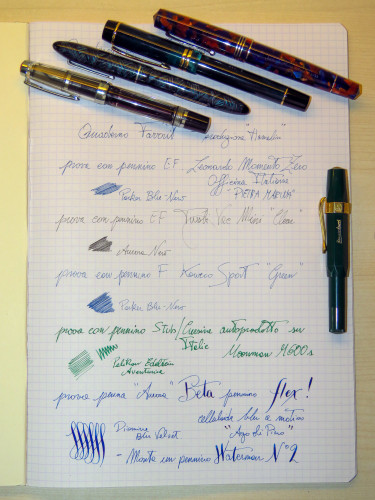 Quaderno Favorit produzione "Hamelin"
prova con pennino EF Leonardo Momento Zero
Officina Italiana
"PIETRA MARINA"
Parker Blu-Nero
prova con pennino EF Twsbi Vac Mini "Clear"
Aurora Nero
prova con pennino F Kaweco Sport "Green"
Parker Blu-Nero
prova con pennino Stub/Cursive autoprodotto su
Italic Moonman M600s
Pelikan Edelstein
Aventurine
prova penna "Auna" Beta pennino flex!
celluloide blu a motivo
Diamine
Blu Velvet "Ago di Pino"
- Monta un pennino Waterman N°2